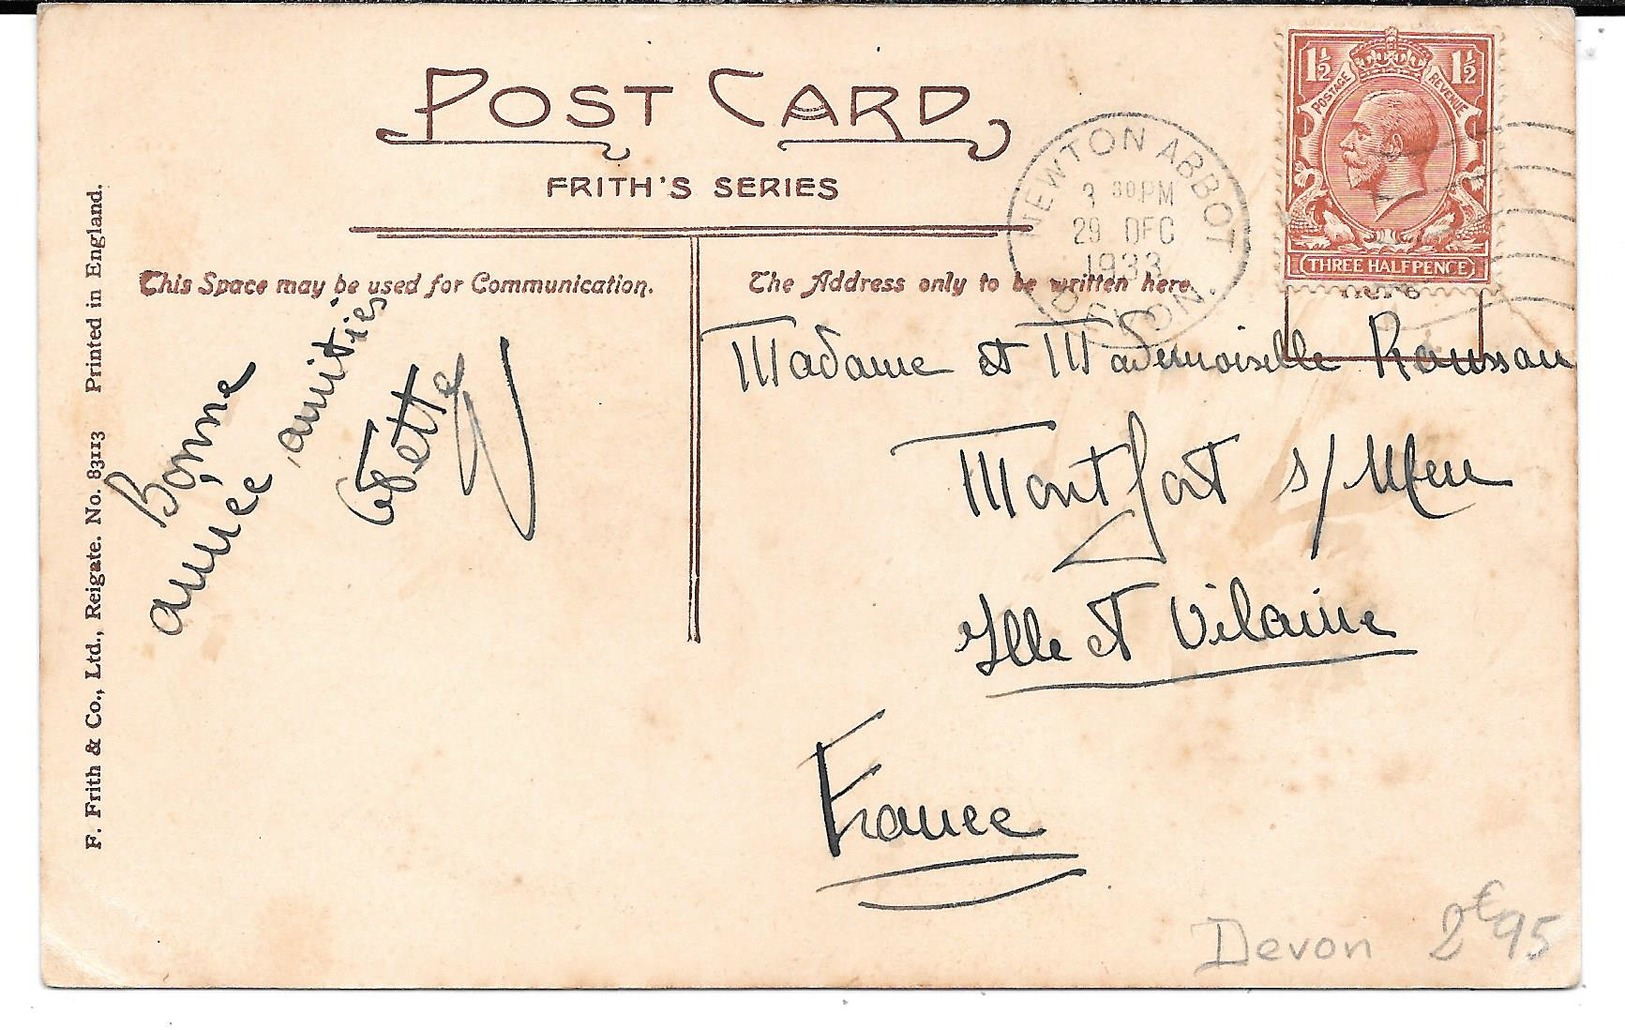 POST CARD
FRITH'S SERIES
This Space may be used for Communication.
The Address only to be written here.
NEWTON ABBOT
3 30 PM
29 DEC
1933
DEVON.
1½ 1½
POSTAGE REVENUE
THREE HALFPENCE
Bonne
année, amitiés
Madame et Mademoiselle
Montfort s/ Meu
Ille et Vilaine
France
Devon 2€95
F. Frith & Co., Ltd., Reigate. No. 83113 Printed in England.